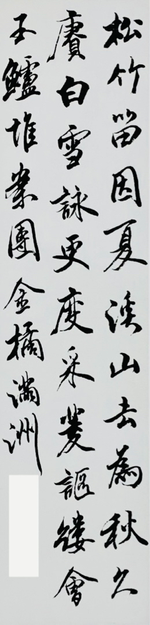 松竹留因夏溪山去為秋久
賡白雪詠更度采菱謳縷會
玉鱸堆案團金橘滿洲